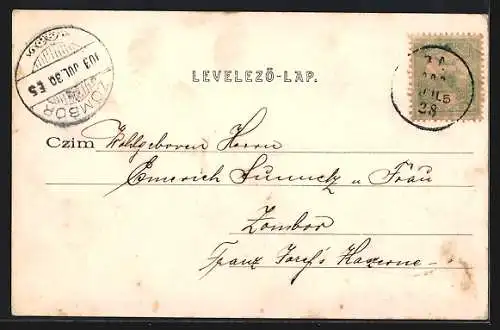 ZOMBOR
903 JUL. 30 E5
LEVELEZŐ-LAP.
JUL 5
28
Czim Wohlgeboren Herrn
Emerich u Frau
Zombor
Franz Josef's Kaserne